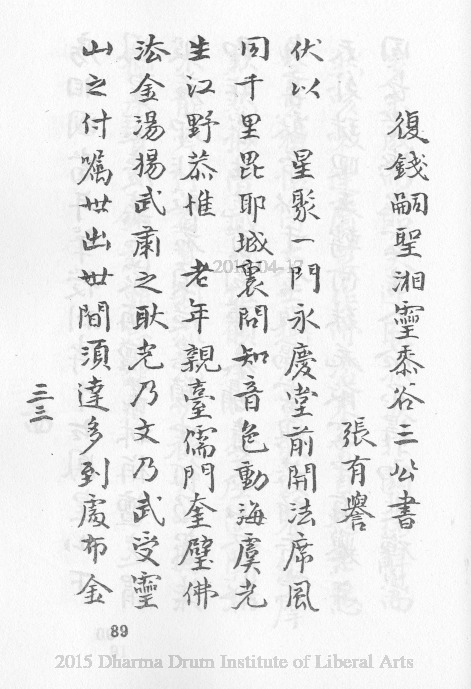 復錢嗣聖湘靈黍谷三公書
張有譽
伏以　星聚一門永慶堂前開法席風
同千里毘耶城裏問知音色動海虞光
生江野恭惟　老年親臺儒門奎璧佛
法金湯揚武肅之耿光乃文乃武受靈
山之付囑世出世間須達多到處布金
三三
89
2015-04-17
2015 Dharma Drum Institute of Liberal Arts